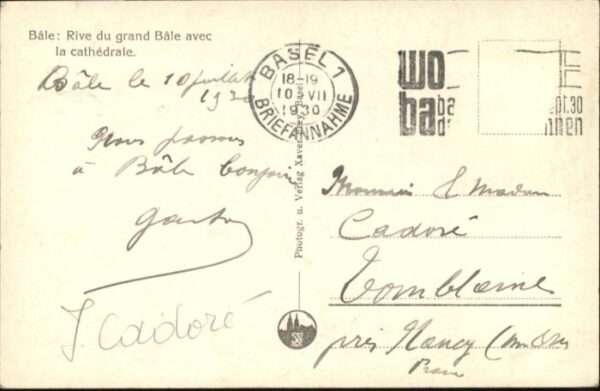 Bâle: Rive du grand Bâle avec
la cathédrale.
Bâle le 10 juillet
1930
Nous passons
à Bâle bonjour
Gaston
J. Cadoré
BASEL 1
18-19
10 VII
1930
BRIEFANNAHME
WO
BA
Photogr. u. Verlag Basel
Monsieur & Madame
Cadoré
Tomblaine
près Nancy